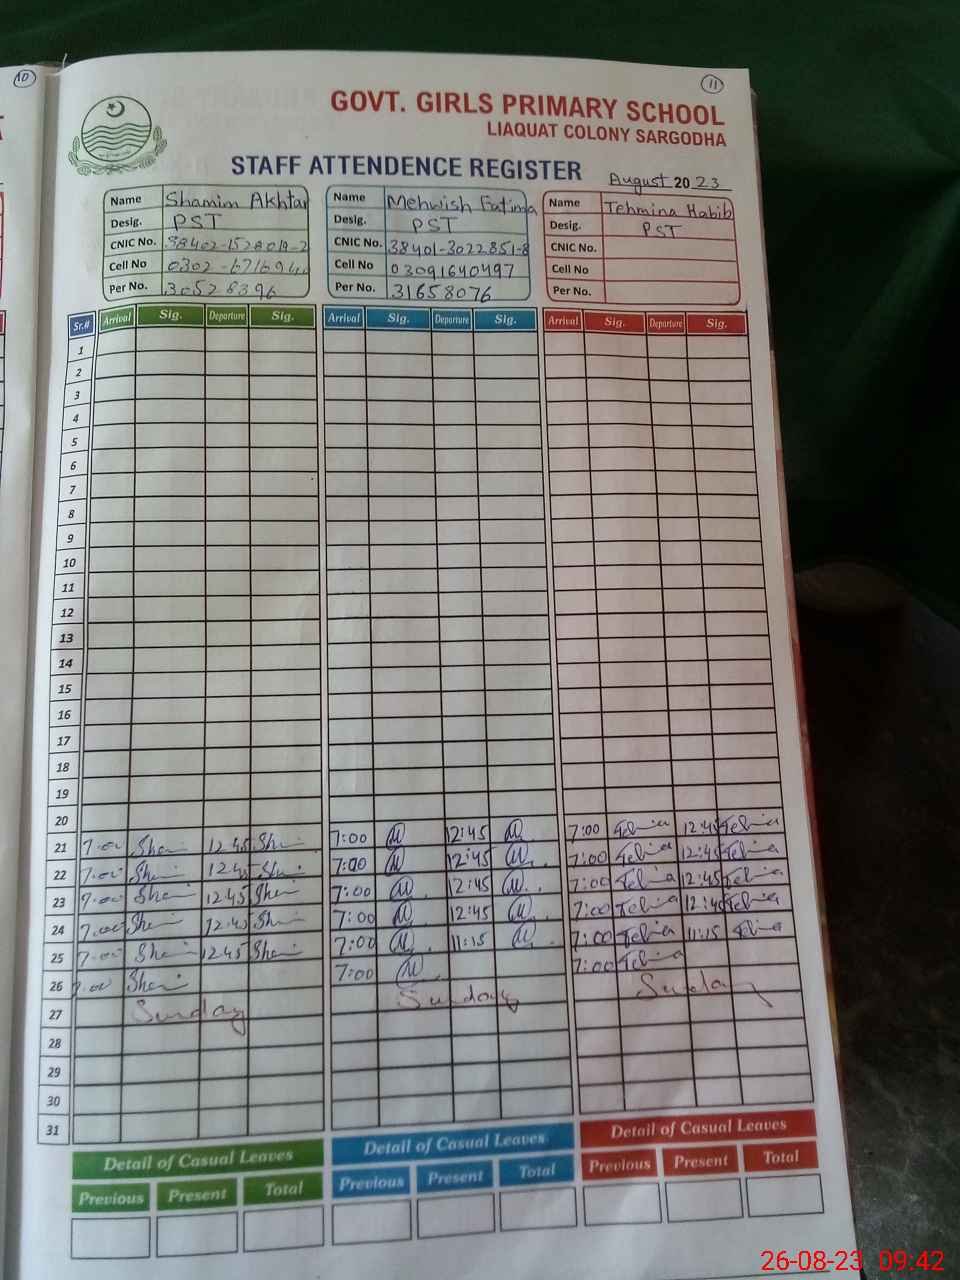 10
11
GOVT. GIRLS PRIMARY SCHOOL
LIAQUAT COLONY SARGODHA
STAFF ATTENDENCE REGISTER
August 2023
Name Shamim Akhtar Name Mehwish Fatima Name Tehmina Habib
Desig. PST Desig. PST Desig. PST
CNIC No. CNIC No. 38401-3022851-8 CNIC No.
Cell No Cell No 03091640497 Cell No
Per No. 30528396 Per No. 31658076 Per No.
Sr.# Arrival Sig. Departure Sig. Arrival Sig. Departure Sig. Arrival Sig. Departure Sig.
1
2
3
4
5
6
7
8
9
10
11
12
13
14
15
16
17
18
19
20
21 7:00 12:45 7:00 12:45 7:00 12:45
22 7:00 12:45 7:00 12:45 7:00 12:45
23 7:00 12:45 7:00 12:45 7:00 12:45
24 7:00 12:45 7:00 12:45 7:00 12:45
25 7:00 12:45 7:00 11:15 7:00 11:15
26 7:00 7:00 7:00
27 Sunday Sunday Sunday
28
29
30
31
Detail of Casual Leaves Detail of Casual Leaves Detail of Casual Leaves
Previous Present Total Previous Present Total Previous Present Total
26-08-23 09:42